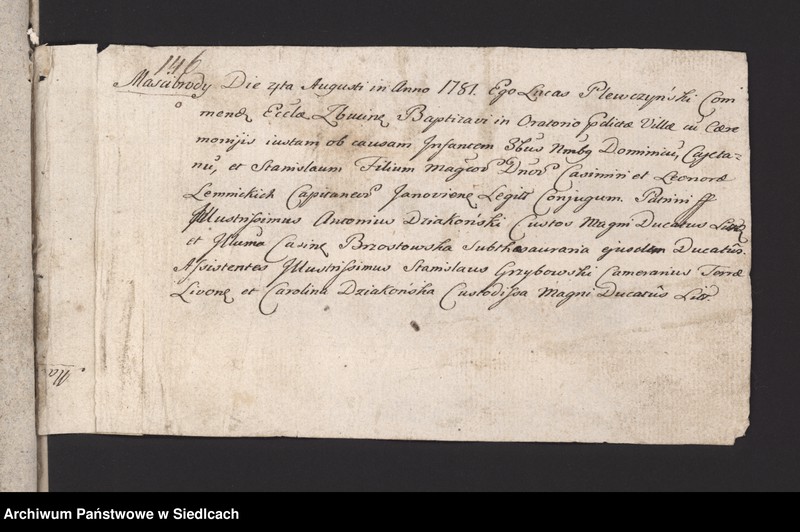 146
Masubrody Die 4ta Augusti in Anno 1781. Ego Lucas Plewczyński Com
mend. Eccla Zbuuinę Baptizavi in Oratorio pdictæ Villæ cu Cære
monijs iustam ob causam Infantem 3bus Nmby Dominicu, Cajeta-
nu, et Stanislaum Filium Magcor Dnor Casimiri et Leonoræ
Lemnickich Capitaneor Janovienę Legitt Conjugum. Patrini ff
Illustrissimus Antonius Dziakoński Custos Magni Ducatus Litt
et Illuma Brzostowska Subthesauraria ejusdem Ducatûs.
Assistentes Illustrissimus Stanislaus Grzybowski Camerarius Terræ
Livonę et Carolina Dziakońska Custodissa Magni Ducatûs Litt.
Archiwum Państwowe w Siedlcach